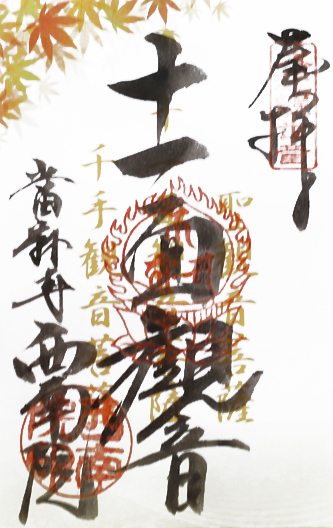 奉拝
聖観音菩薩
十一面観音
千手観音菩薩
當麻寺
西南院